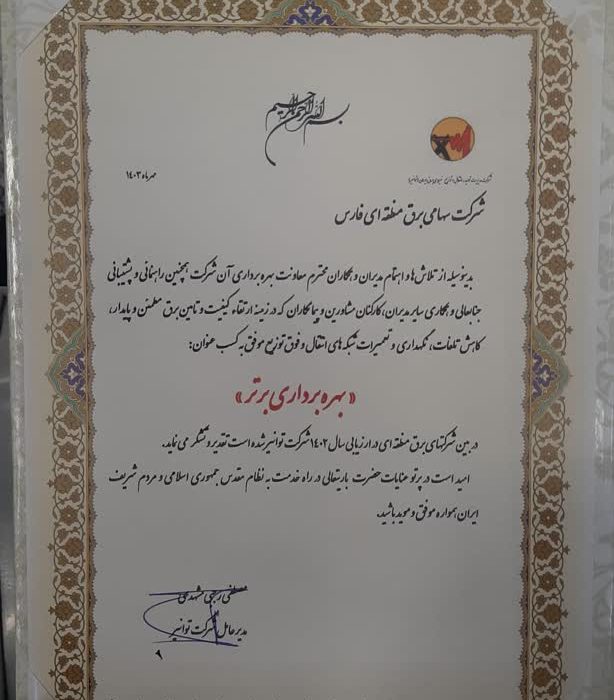 بسم الله الرحمن الرحیم
مهر ماه ۱۴۰۳
شرکت سهامی برق منطقه ای فارس
بدینوسیله از تلاش ها و اهتمام مدیران و همکاران محترم معاونت بهره برداری آن شرکت همچنین راهنمائی و پشتیبانی
جنابعالی و همکاری سایر مدیران، کارکنان مشاورین و پیمانکاران که در زمینه ارتقاء کیفیت و تامین برق مطمئن و پایدار،
کاهش تلفات، نگهداری و تعمیرات شبکه های انتقال و فوق توزیع موفق به کسب عنوان:
«بهره برداری برتر»
در بین شرکتهای برق منطقه ای در ارزیابی سال ۱۴۰۲ شرکت توانیر شده است تقدیر و تشکر می نماید.
امید است در پرتو عنایات حضرت باریتعالی در راه خدمت به نظام مقدس جمهوری اسلامی و مردم شریف
ایران همواره موفق و موید باشید.
مصطفی رجبی مشهدی
مدیر عامل شرکت توانیر
۹